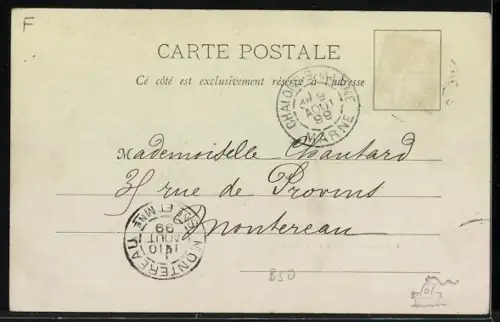 F
CARTE POSTALE
Ce côté est exclusivement réservé à l'adresse
CHALONS-S-MARNE
9
AOUT
99
MARNE
Mademoiselle Chautard
31 rue de Provins
Montereau
MONTEREAU
SNE ET MNE
10
AOUT
99
850